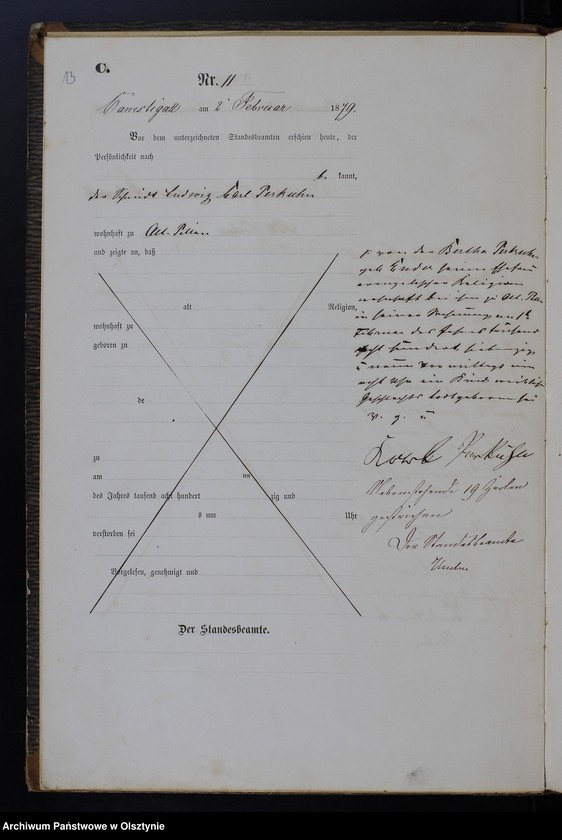 13
C.
Nr. 11
am 2 Februar 1879.
Vor dem unterzeichneten Standesbeamten erschien heute, der
Persönlichkeit nach
b. kannt,
der Ludwig Carl Perkuhn
wohnhaft zu Alt. Pillau
und zeigte an, daß
von der Bertha
geb. seine
evangelischer Religion
wohnhaft bei ihm zu Alt. Pillau
in seiner Wohnung am
Februar des Jahres tausend
acht hundert sieben zig
u neun Vormittags um
acht Uhr ein Kind weiblichen
Geschlechts todtgeboren sei
v. g. u
alt Religion,
wohnhaft zu
geboren zu
de
zu
am ten
des Jahres tausend acht hundert zig und
s um Uhr
verstorben sei
Vorgelesen, genehmigt und
Karl Perkuhn
Nebenstehende 19 Zeilen
gestrichen
Der Standesbeamte
Der Standesbeamte.
Archiwum Państwowe w Olsztynie